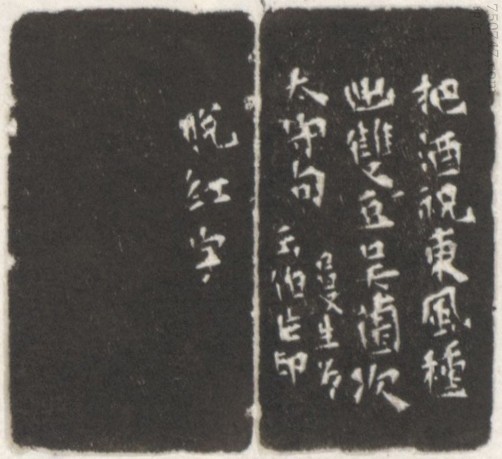 把酒祝東風種
出雙豆吳薗次
太守句
曼生為
云伯作印
脫紅字